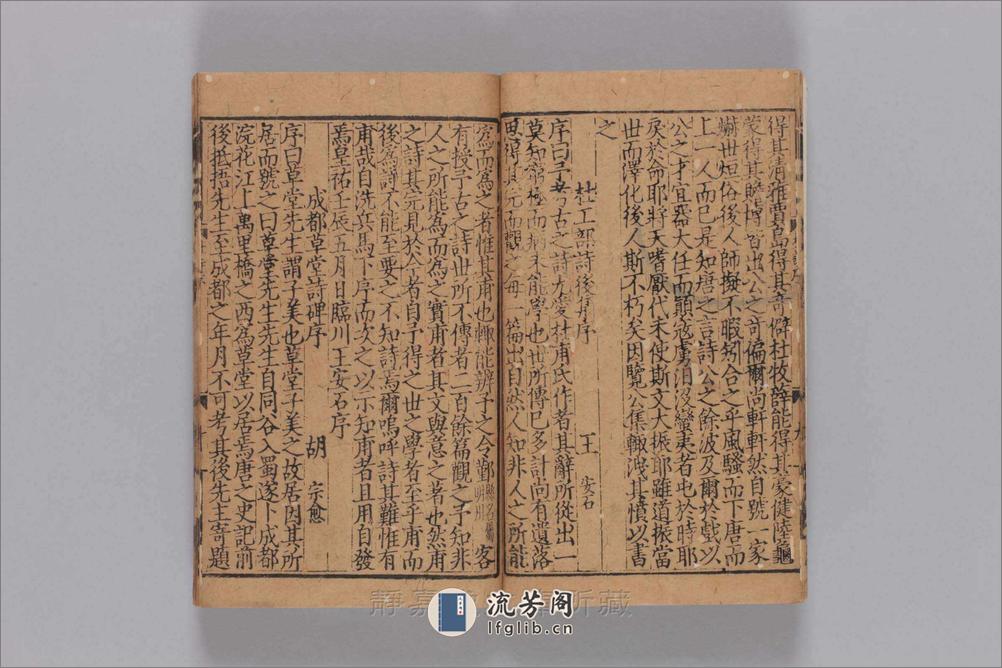 得其清雅賈島得其奇僻杜牧薛能得其豪健陸龜
蒙得其贍博皆出公之奇偏爾尚軒軒然自號一家
爀世烜俗後人師擬不暇矧合之乎風騷而下唐而
上一人而已是知唐之言詩公之餘波及爾於戲以
公之才宜器大任而顛沛虜汨没蠻夷者屯於時耶
戾於命耶將天嗜厭代未使斯文大振耶雖道振當
世而澤化後人斯不朽矣因覽公集輙洩其憤以書
之
杜工部詩後集序
王 安石
序曰予考古之詩尤愛杜甫氏作者其辭所從出一
莫知窮極而病未能學也世所傳已多計尚有遺落
思得其完而觀之每一篇出自然人知非人之所能
為而為之者惟其甫也輙能辨予之令鄞 客
有授予古之詩世所不傳者二百餘篇觀之予知非
人之所能為而為之實甫者其文與意之著也然甫
之詩其完見於今者自予得之世之學者至乎甫而
後為詩不能至要之不知詩焉爾嗚呼詩其難惟有
甫哉自洗兵馬下序而次之以示知甫者且用自發
焉皇祐壬辰五月日臨川王安石序
成都草堂詩碑序
胡 宗愈
序曰草堂先生謂子美也草堂子美之故居因其所
居而號之曰草堂先生先生自同谷入蜀遂卜成都
浣花江上萬里橋之西為草堂以居焉唐之史記前
後抵捂先生至成都之年月不可考其後先生寄題
靜嘉 所藏
流芳阁
lfglib.cn